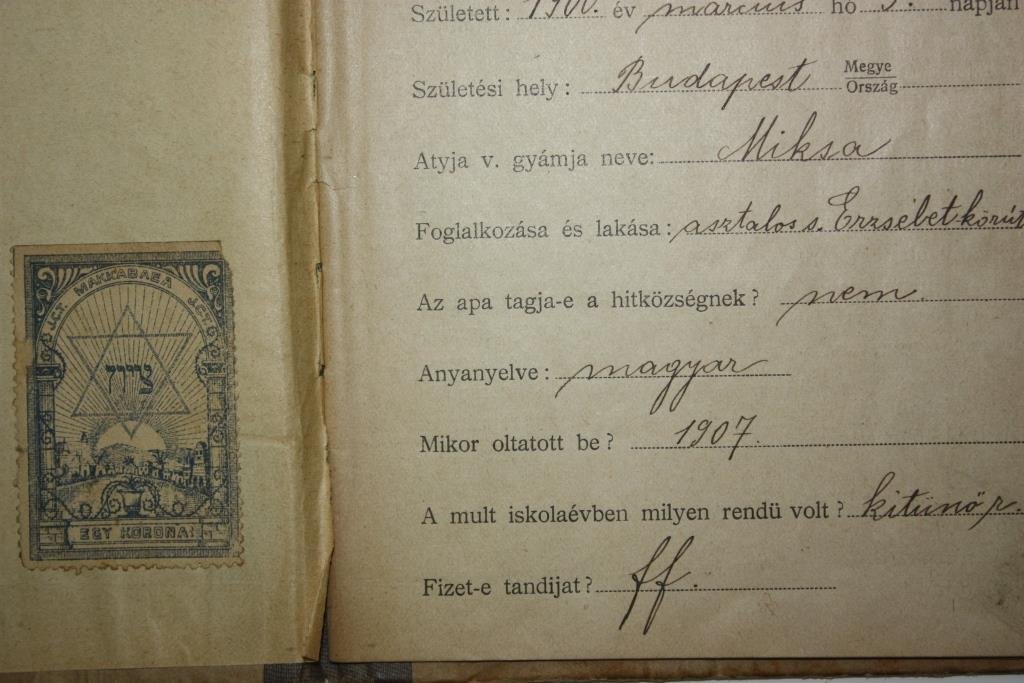 J.C.T. MAKKABAEA J.C.T.
ציון
EGY KORONA
Született: 1900. év március hó 5. napján
Születési hely: Budapest Megye
Ország
Atyja v. gyámja neve: Miksa
Foglalkozása és lakása: asztalos s. Erzsébetkörút
Az apa tagja-e a hitközségnek? nem.
Anyanyelve: magyar
Mikor oltatott be? 1907.
A mult iskolaévben milyen rendü volt? kitünő r.
Fizet-e tandijat? ff.